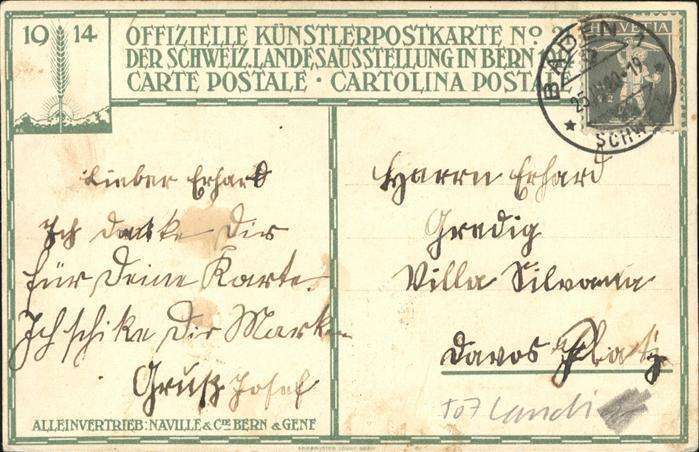 1914
OFFIZIELLE KÜNSTLERPOSTKARTE No 2
DER SCHWEIZ. LANDESAUSSTELLUNG IN BERN
CARTE POSTALE · CARTOLINA POSTALE
HELVETIA
BADEN
SCHW
Lieber Erhard
Ich danke Dir
für Deine Karte.
Ich schike Dir Marken
Gruß Josef
Herrn Erhard
Gredig
Villa Silvana
Davos Platz
ALLEINVERTRIEB: NAVILLE & Cie BERN & GENF